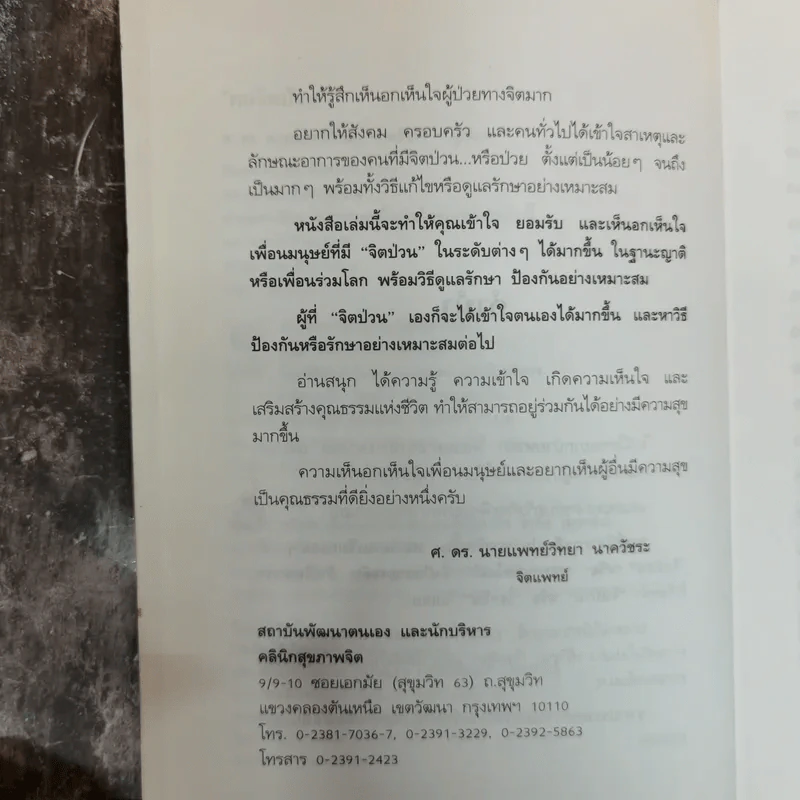 ทำให้รู้สึกเห็นอกเห็นใจผู้ป่วยทางจิตมาก
อยากให้สังคม ครอบครัว และคนทั่วไปได้เข้าใจสาเหตุและ
ลักษณะอาการของคนที่มีจิตป่วน...หรือป่วย ตั้งแต่เป็นน้อยๆ จนถึง
เป็นมากๆ พร้อมทั้งวิธีแก้ไขหรือดูแลรักษาอย่างเหมาะสม
หนังสือเล่มนี้จะทำให้คุณเข้าใจ ยอมรับ และเห็นอกเห็นใจ
เพื่อนมนุษย์ที่มี “จิตป่วน” ในระดับต่างๆ ได้มากขึ้น ในฐานะญาติ
หรือเพื่อนร่วมโลก พร้อมวิธีดูแลรักษา ป้องกันอย่างเหมาะสม
ผู้ที่ “จิตป่วน” เองก็จะได้เข้าใจตนเองได้มากขึ้น และหาวิธี
ป้องกันหรือรักษาอย่างเหมาะสมต่อไป
อ่านสนุก ได้ความรู้ ความเข้าใจ เกิดความเห็นใจ และ
เสริมสร้างคุณธรรมแห่งชีวิต ทำให้สามารถอยู่ร่วมกันได้อย่างมีความสุข
มากขึ้น
ความเห็นอกเห็นใจเพื่อนมนุษย์และอยากเห็นผู้อื่นมีความสุข
เป็นคุณธรรมที่ดียิ่งอย่างหนึ่งครับ
ศ. ดร. นายแพทย์วิทยา นาควัชระ
จิตแพทย์
สถาบันพัฒนาตนเอง และนักบริหาร
คลินิกสุขภาพจิต
9/9-10 ซอยเอกมัย (สุขุมวิท 63) ถ.สุขุมวิท
แขวงคลองตันเหนือ เขตวัฒนา กรุงเทพฯ 10110
โทร. 0-2381-7036-7, 0-2391-3229, 0-2392-5863
โทรสาร 0-2391-2423